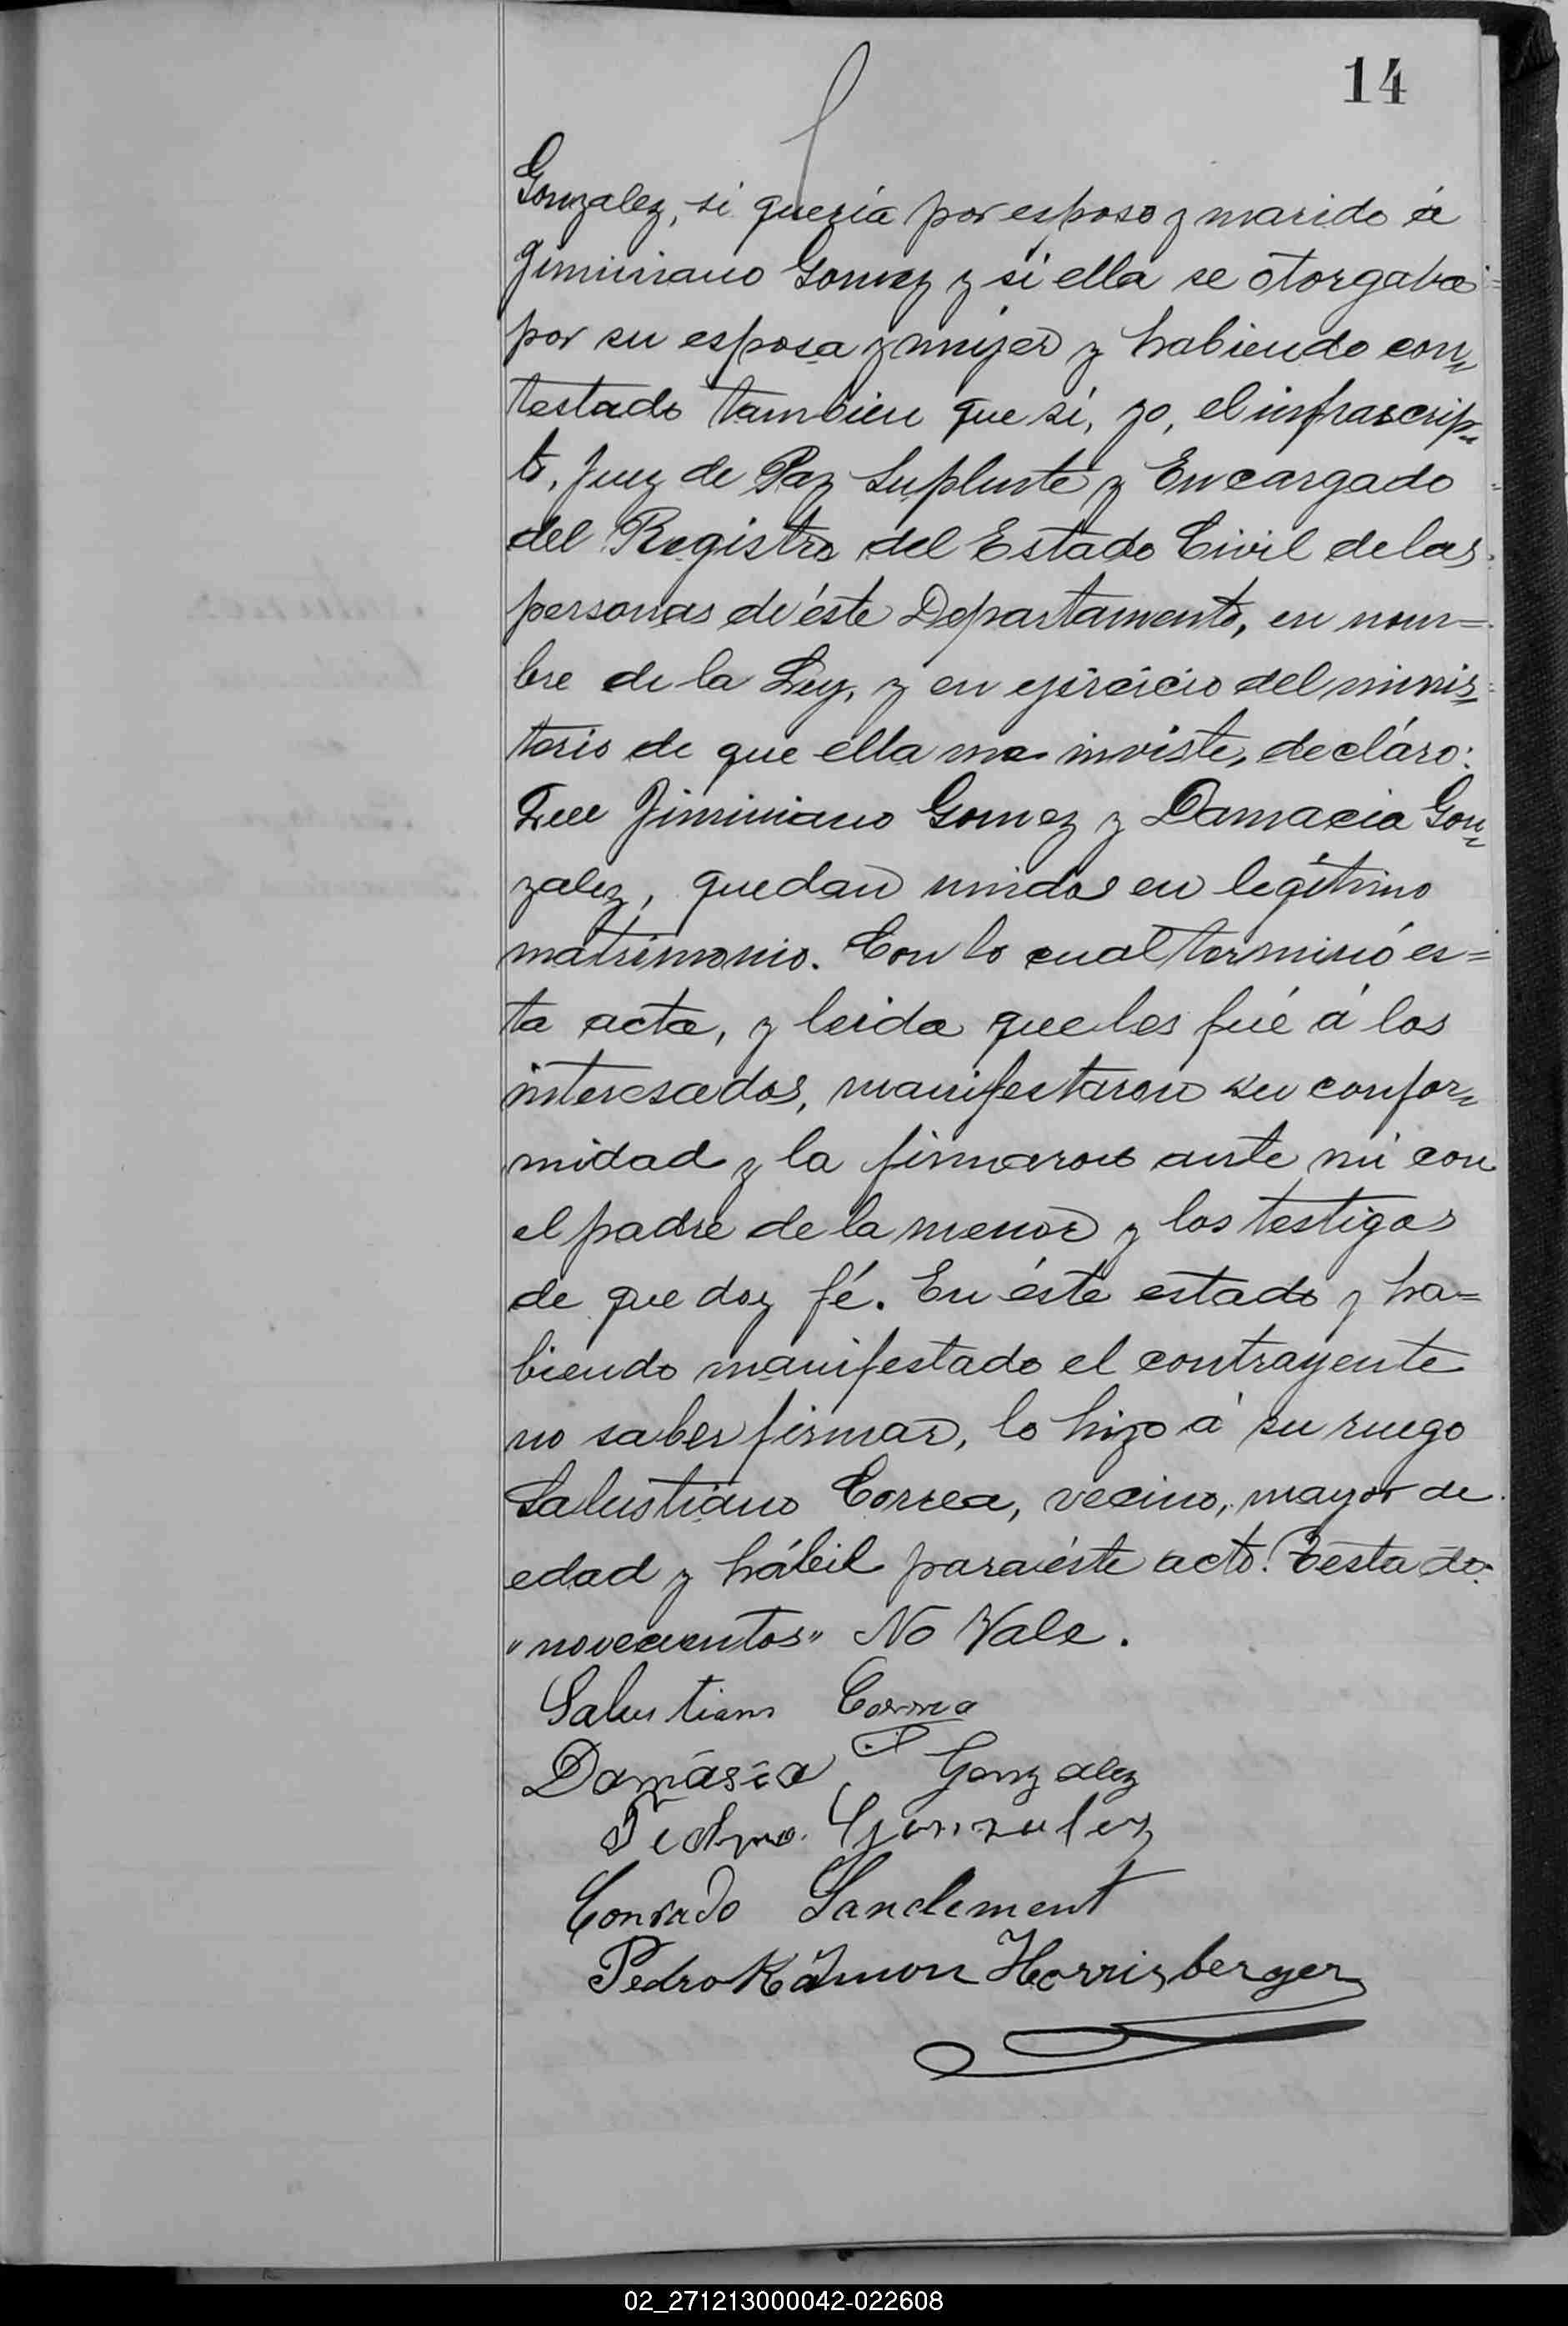 14
Gonzalez, si quería por esposo y marido á
Jiminiano Gomez y si ella se otorgaba
por su esposa y mujer y habiendo con„
testado tambien que si, yo, el infrascrip„
to, Juez de Paz Suplente y Encargado
del Registro del Estado Civil de las
personas de éste Departamento, en nom=
bre de la Ley, y en ejercicio del minis„
terio de que ella me inviste, decláro:
Que Jiminiano Gomez y Damacia Gon„
zalez, quedan unidos en legítimo
matrimonio. Con lo cual terminó es=
ta acta, y leida que les fué á los
interesados, manifestaron su confor„
midad y la firmaron ante mi con
el padre de la menor y los testigos
de que doy fé. En éste estado y ha=
biendo manifestado el contrayente
no saber firmar, lo hizo á su ruego
Salustiano Correa, vecino, mayor de
edad y hábil para éste acto. Testado:
"novecientos" No Vale.
Salustiano Correa
Damásia Gonzalez
Gonzalez
Conrado Sanclement
Pedro Ramon Herrisberger
02_271213000042-022608